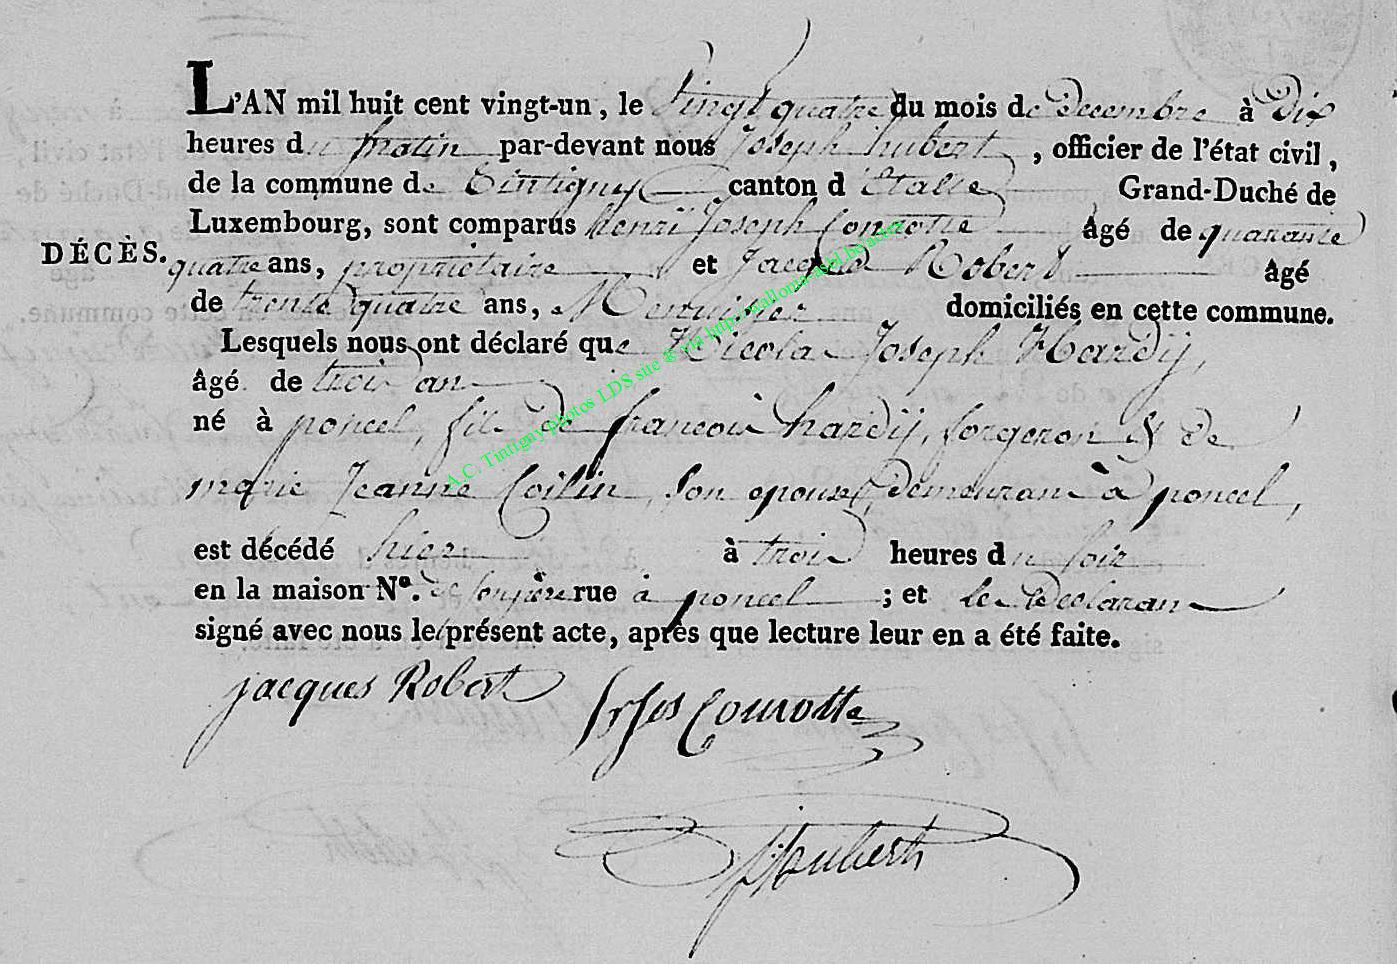 L'AN mil huit cent vingt-un, le vingt quatre du mois de decembre à dix
heures du matin par-devant nous Joseph hubert, officier de l'état civil,
de la commune de Tintigny canton d'Etalle Grand-Duché de
Luxembourg, sont comparus henri Joseph Conrotte âgé de quarante
DÉCÈS. quatre ans, propriétaire et Jacques Robert âgé
de trente quatre ans, Menuisier domiciliés en cette commune.
Lesquels nous ont déclaré que Nicolas Joseph Hardÿ,
âgé de trois ans
né à poncel, fils de françois hardÿ, forgeron & de
marie Jeanne Collin, son epouse, demeurant à poncel,
est décédé hier à trois heures du soir
en la maison N°. de son père rue à poncel ; et les Declarans
signé avec nous le présent acte, après que lecture leur en a été faite.
jacques Robert
Conrotte
J Hubert
A.C. Tintigny photos LDS sue & via http:wallonia-asbl.be/actes